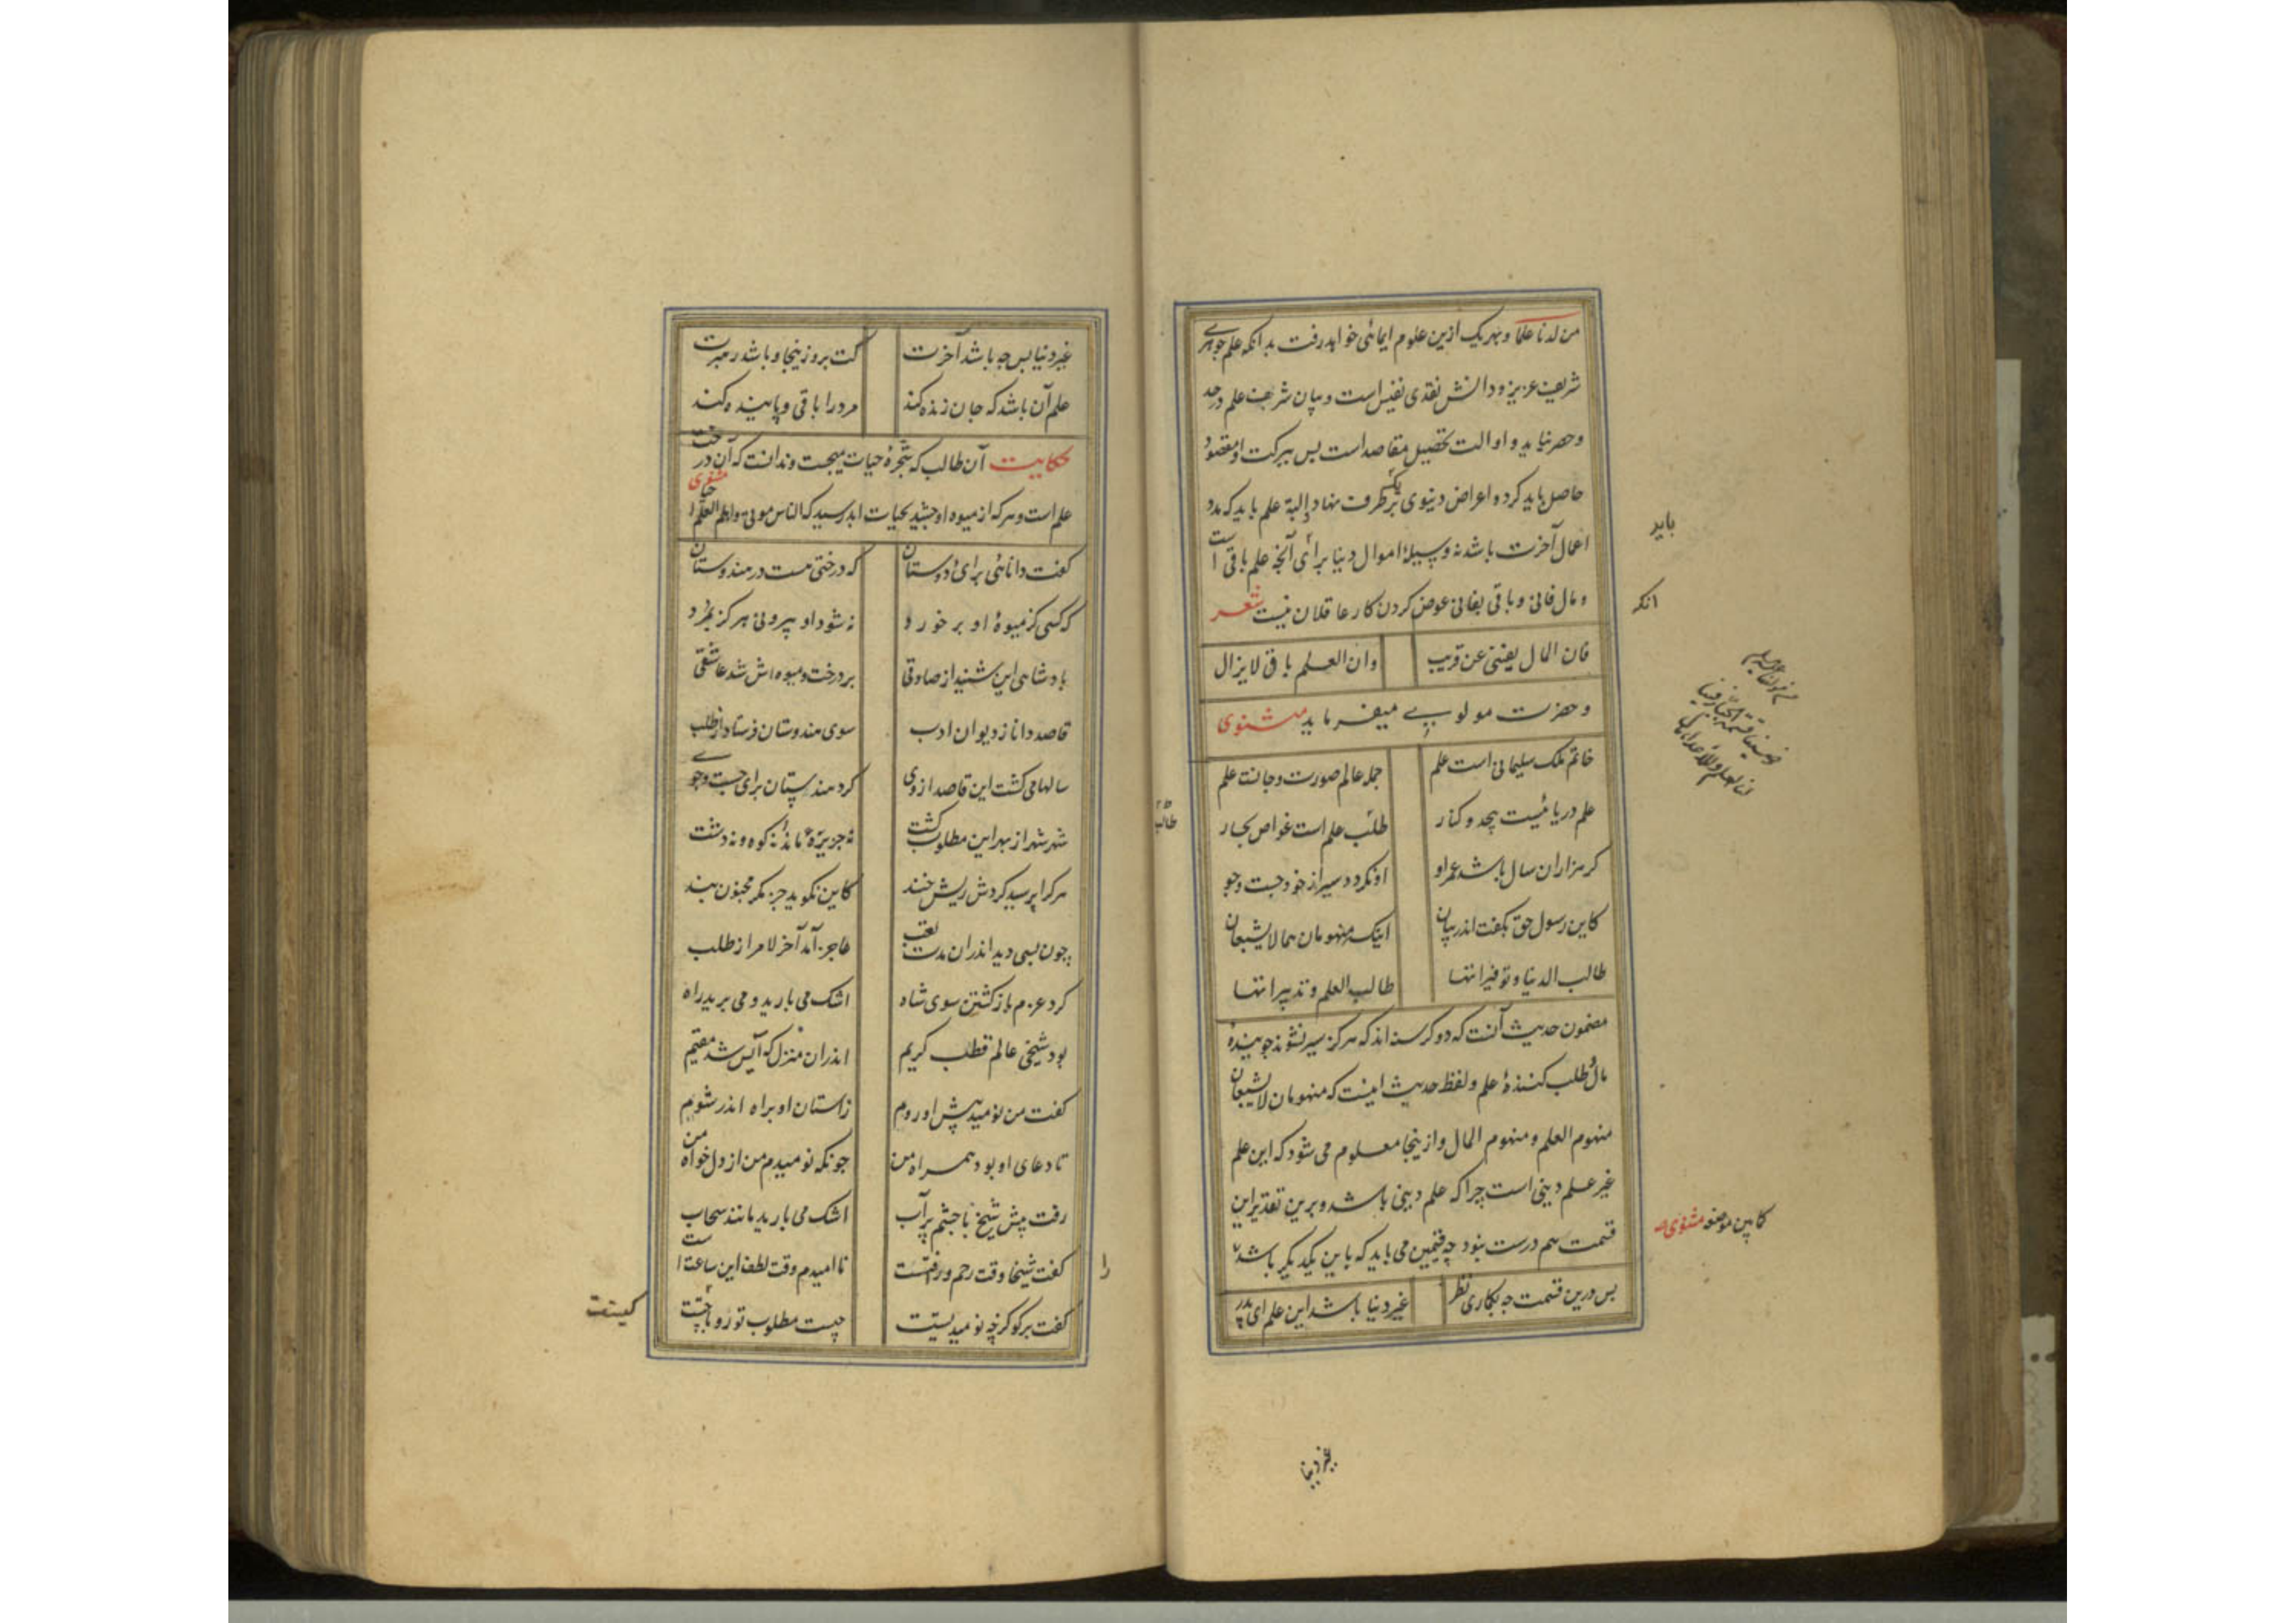 من لدنا علما و بهر یک ازین علوم ایمائی خواهد رفت بدانکه علم جوهری
شریف عزیز و دانش نقدی نفیس است و بیان شریف علم در حد
و حصر نیاید و او الت تحصیل مقاصد است پس ببرکت او مقصود
حاصل باید کرد و اعراض دینوی بر طرف نهاد البة علم باید که مدد
اعمال آخرت باشد نه وسیلهٔ اموال دنیا برای آنچه علم باقی است
و مال فانی و باقی بفانی عوض کردن کار عاقلان نیست شعر
فان المال یفنی عن قریب
وان العلم باقی لا یزال
و حضرت مولوی میفرماید مثنوی
خاتم ملک سلیمانی است علم
جمله عالم صورت و جانست علم
علم دریائیست بیحد و کنار
طالب علم است غواص بحار
کر هزاران سال باشد عمر او
او نکردد سیر از خود جست و جو
کاین رسول حق بکفت اندر بیان
اینکه منهومان هما لا یشبعان
طالب الدنیا و توفیراتها
طالب العلم و تدبیراتها
مضمون حدیث آنست که دو کرسنه اند که هرکز سیر نشوند جویندهٔ
مال و طلب کنندهٔ علم و لفظ حدیث اینست که منهومان لا یشبعان
منهوم العلم و منهوم المال و ازینجا معلوم می شود که این علم
غیر علم دینی است چرا که علم دینی باشد و برین تقدیر این
قسمت هم درست نبود چه قسمین می باید که باین یکدیکر باشد
پس درین قسمت چه بکاری نظر
غیر دنیا باشد این علم ای پدر
باید
انکه
طالب
کاین موضعه مثنوی
غیر دنیا
غیر دنیا پس چه باشد آخرت
کت برو زینجا و باشد رهبرت
علم آن باشد که جان زنده کند
مرد را باقی و پاینده کند
حکایت آن طالب که شجرهٔ حیات میجست و ندانست که آن درخت
علم است و هر که از میوه او چشید بحیات ابد رسید که الناس موتی و اهل العلم احیا مثنوی
کفت دانائی برای دوستان
که درختی هست در هندوستان
که کسی کز میوهٔ او بر خورد
نه شود او پیر و نی هرکز بمرد
پادشاهی این شنید از صادقی
بر درخت و میوه اش شد عاشقی
قاصد دانا ز دیوان ادب
سوی هندوستان فرستاد از طلب
سالها می کشت این قاصد ازوی
کرد هندستان برای جست و جوی
شهر شهر از بهر این مطلوب کشت
نه جزیره ماند نه کوه و نه دشت
هر کرا پرسید کردش ریش خند
کاین نکوید جز مکر مجنون بند
چون بسی دید اندران مدت تعب
عاجز آمد آخر لامر از طلب
کرد عزم باز کشتن سوی شاه
اشک می بارید و می برید راه
بود شیخی عالم قطب کریم
اندران منزل که آیس شد مقیم
کفت من نومید پیش او روم
زاستان او براه اندر شوم
تا دعای او بود همراه من
چونکه نومیدم من از دل خواه من
رفت پیش شیخ با چشم پر آب
اشک می بارید مانند سحاب
کفت شیخا وقت رحم و رافتست
نا امیدم وقت لطف این ساعت است
کفت برکو کز چه نومیدیست
چیست مطلوب تو رو با چیست
را
کیستت